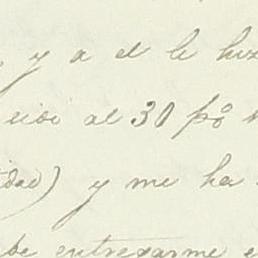 , y a el le hiz
uibo al 30 pº
idad) y me ha
be entregarme e